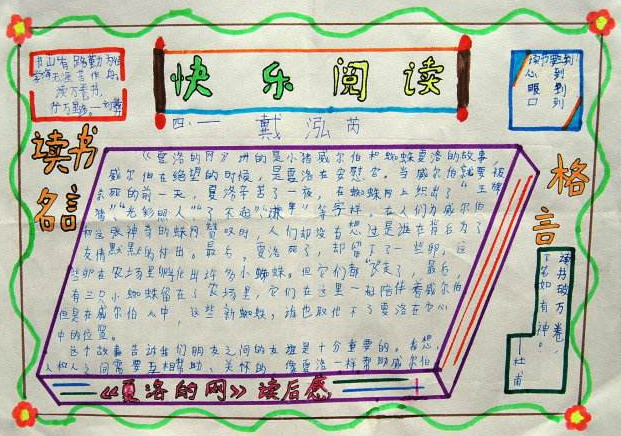 快乐阅读
四、一
戴泓芮
书山有路勤为径
学海无涯苦作舟
读万卷书,
行万里路。—刘彝
读书要三到
心到
眼到
口到
读书
名言
格言
《夏洛的网》讲的是小猪威尔伯和蜘蛛夏洛的故事,
威尔伯在绝望的时候,是夏洛在安慰它。当威尔伯就要被
杀死的前一天,夏洛辛苦了一夜,在蜘蛛网上织出了“王牌
猪”“光彩照人”“了不起”“谦卑”等字样。在人们为威尔伯
和这张神奇的蛛网赞叹时,人们却没有想过是谁在背后为了
友情默默的付出。最后,夏洛死了,却留下了一些卵,这
些卵在农场里孵化出许多小蜘蛛。但它们都飞走了,最后,
有三只小蜘蛛留在了农场里,它们在这里一起陪伴着威尔伯
但是在威尔伯心中,这些新蜘蛛,谁也取代不了夏洛在它心
中的位置。
这个故事告诉我们朋友之间的友谊是十分重要的。我想,
人和人之间需要互相帮助、关怀的,像夏洛一样帮助威尔伯
《夏洛的网》读后感
读书破万卷,
下笔如有神。
——杜甫